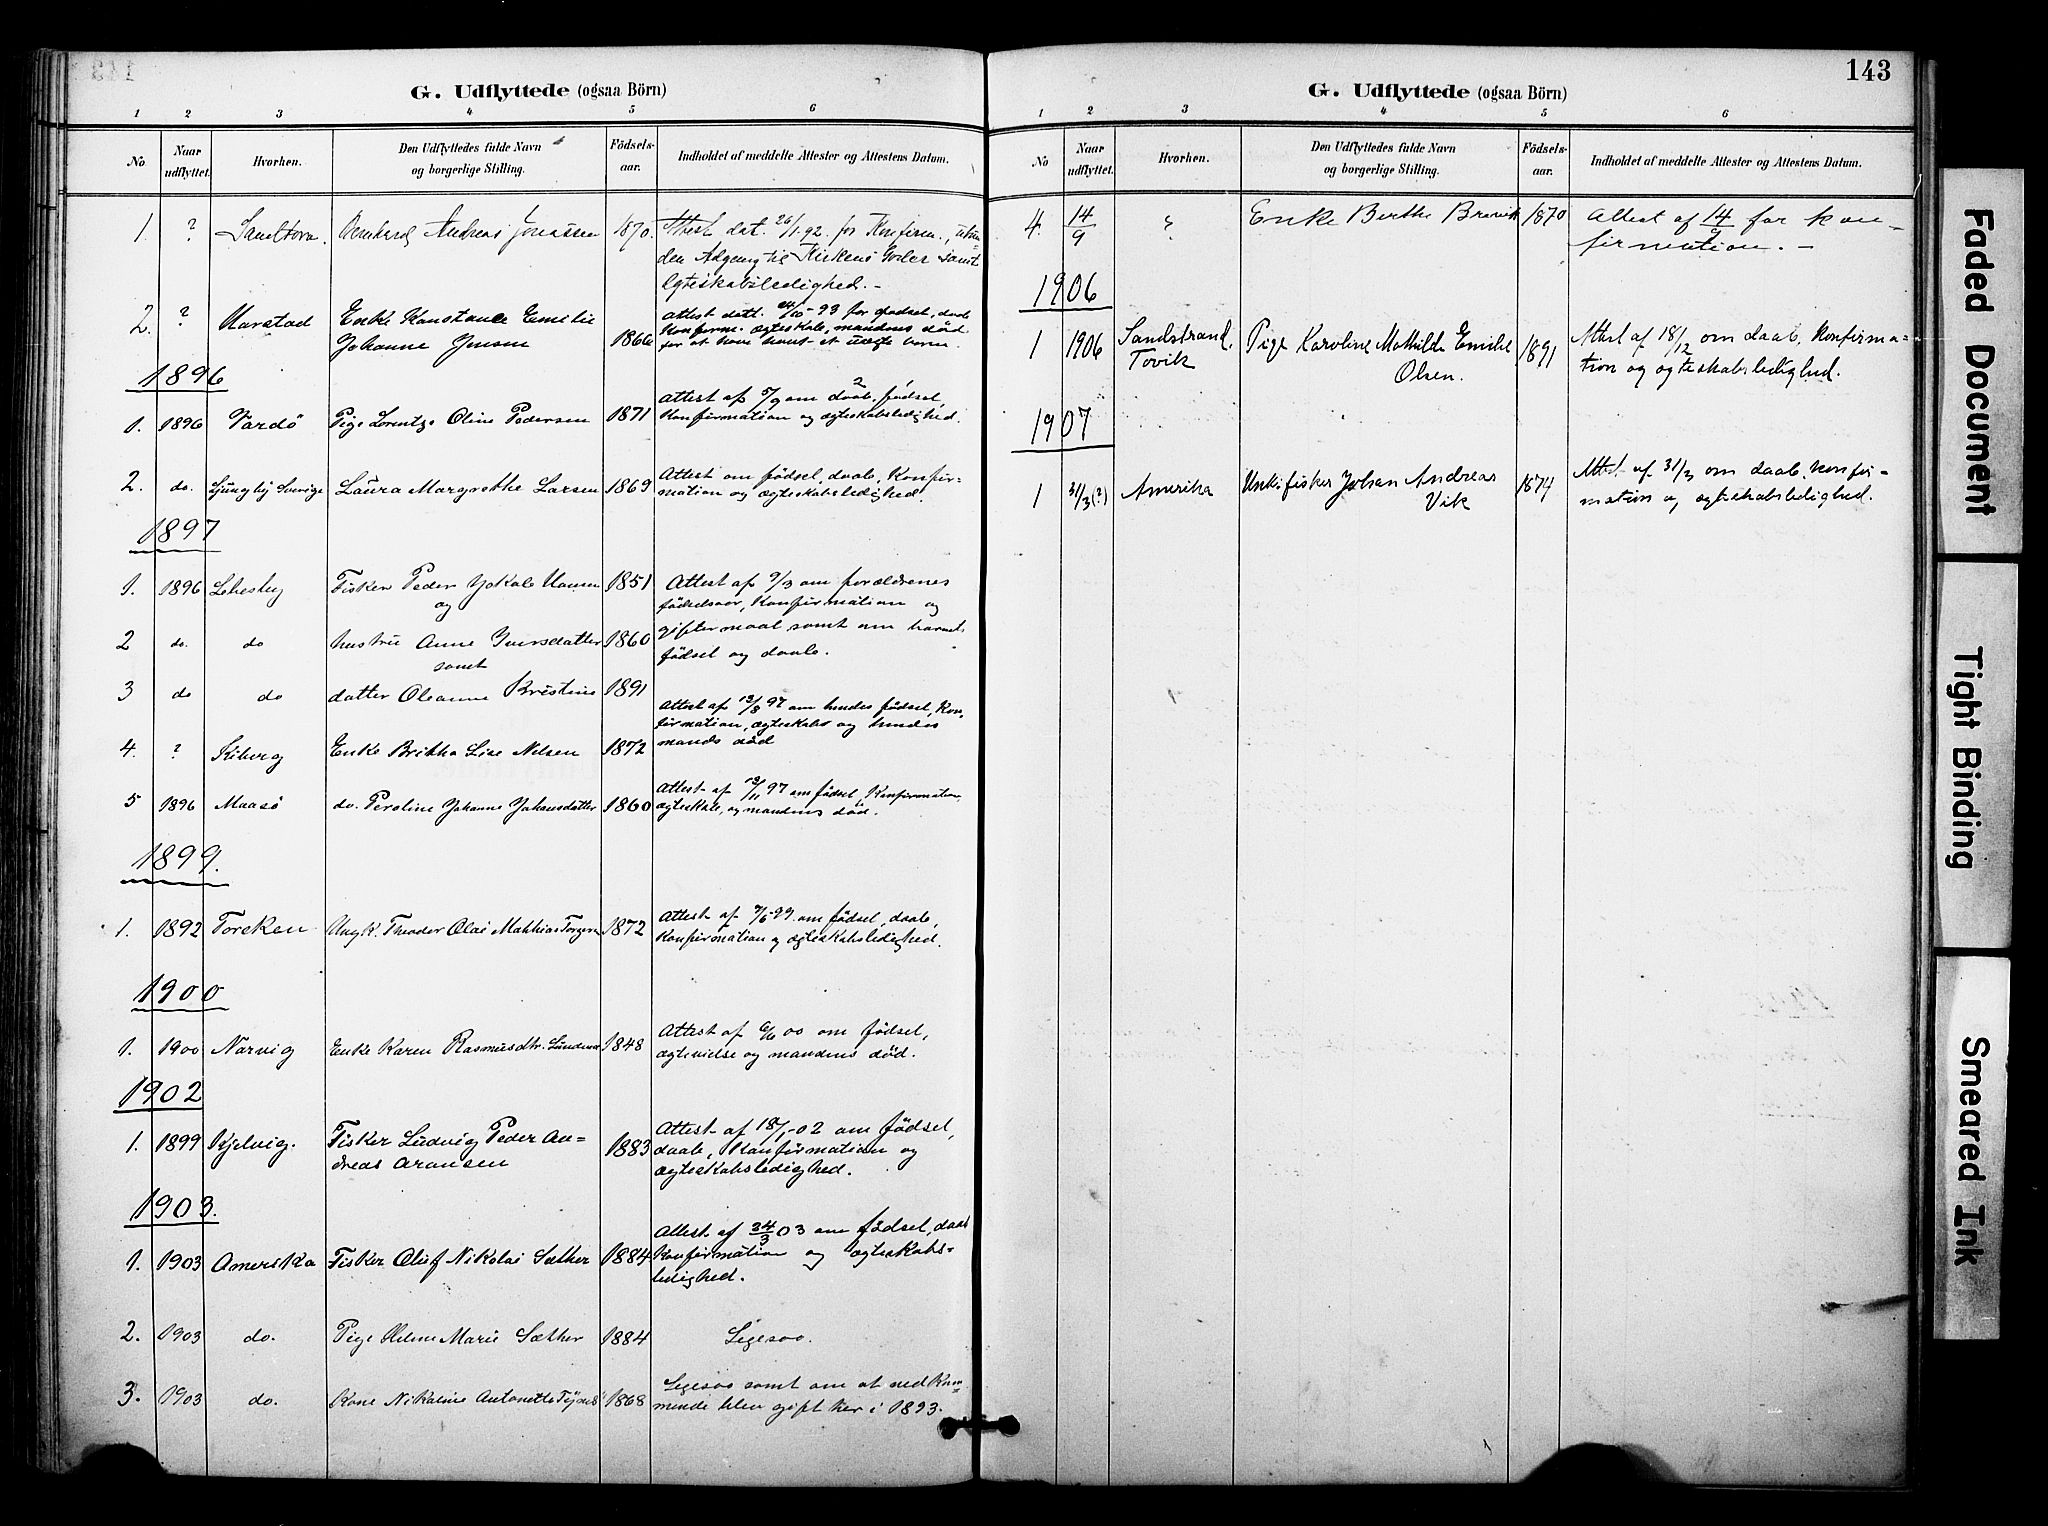 G. Udflyttede (ogsaa Börn)
1 2 3 4 5 6
No
Naar udflyttet.
Hvorhen.
Den Udflyttedes fulde Navn
og borgerlige Stilling.
Födsels-
aar.
Indholdet af meddelte Attester og Attestens Datum.
1. ? Sandtorv. Bernhard Andreas Jonassen 1870. Attest dat. 26/1 92. for Konfirm.,
den Adgang til Kirkens Goder samt
Ægteskabsledighed.-
2. ? Harstad Enke Konstance Emilie
Johanne Jensen 1866
attest datt. 24/10-93 for fødsel, daab
Konfirm. ægteskab, mandens död
for at have havt et uægte barn.
1896
1. 1896 Vardö Pige Lorentze Oline Pedersen 1871
Attest af 5/9 om daab, födsel,
Konfirmation og ægteskabsledighed.
2. do. Ljungby Sverige Laura Margrethe Larsen 1869
Attest om födsel, daab, Konfir-
mation og ægteskabsledighed.
1897
1. 1896 Lebesby Fisker Peder Jokab Hansen 1851
og
Attest af 9/3 om forældrenes
födselsaar, Konfirmation og
2 do. do hustru Anne Iversdatter 1860
samt
giftermaal samt om barnets
födsel og daab.
3 do do datter Oleanne Kristine 1891
4. ? Kiberg Enke Britha Lise Nilsen 1872
Attest af 13/8 97 om hendes födsel, Kon-
firmation, ægteskab og hendes
mands död
5 1896 Maasö do. Peroline Johanne Johansdatter 1860
Attest af 13/11 97 om födsel, Konfirmation,
ægteskab, og mandens död.
1899.
1. 1892 Torsken Ungk. Theodor Olai Mathias Torgersen 1872
Attest af 7/6-99 om födsel, daab,
Konfirmation og ægteskabsledighed.
1900
1. 1900 Narvig Enke Karen Rasmusdtr. 1848
Attest af 6/6 00 om födsel,
ægtevielse og mandens död.
1902
1. 1899 Kjelvig. Fisker Ludvig Peder An-
dreas Aronsen 1883
Attest af 18/1-02 om födsel,
daab, Konfirmation og
ægteskabsledighed.
1903.
1. 1903 Amerika Fisker Oluf Nikolai Sæther 1884
Attest af 24/3 03 om födsel, daab
Konfirmation og ægteskabs-
ledighed.
2. 1903 do. Pige Helene Marie Sæther 1884 Ligesaa.
3. 1903 do. Kone Nikoline Antonette 1868
Ligesaa samt om at vedkom-
mende blev gift her i 1893.
143
G. Udflyttede (ogsaa Börn)
1 2 3 4 5 6
No
Naar udflyttet.
Hvorhen.
Den Udflyttedes fulde Navn
og borgerlige Stilling.
Födsels-
aar.
Indholdet af meddelte Attester og Attestens Datum.
4. 14/9 ? Enke Berthe Brevik 1870 Attest af 14/9 for kon-
firmation. -
1906
1 1906 Sandstrand,
Tovik
Pige Karoline Mathilde Emilie
Olsen. 1891
Attest af 18/12 om daab, Konfirma-
tion og ægteskabsledighed.
1907
1 31/3 (?) Amerika Unkfisker Johan Andreas
Vik 1874
Attest af 31/3 om daab, konfir-
mation og ægteskabsledighed.
Faded Document
Tight Binding
Smeared Ink